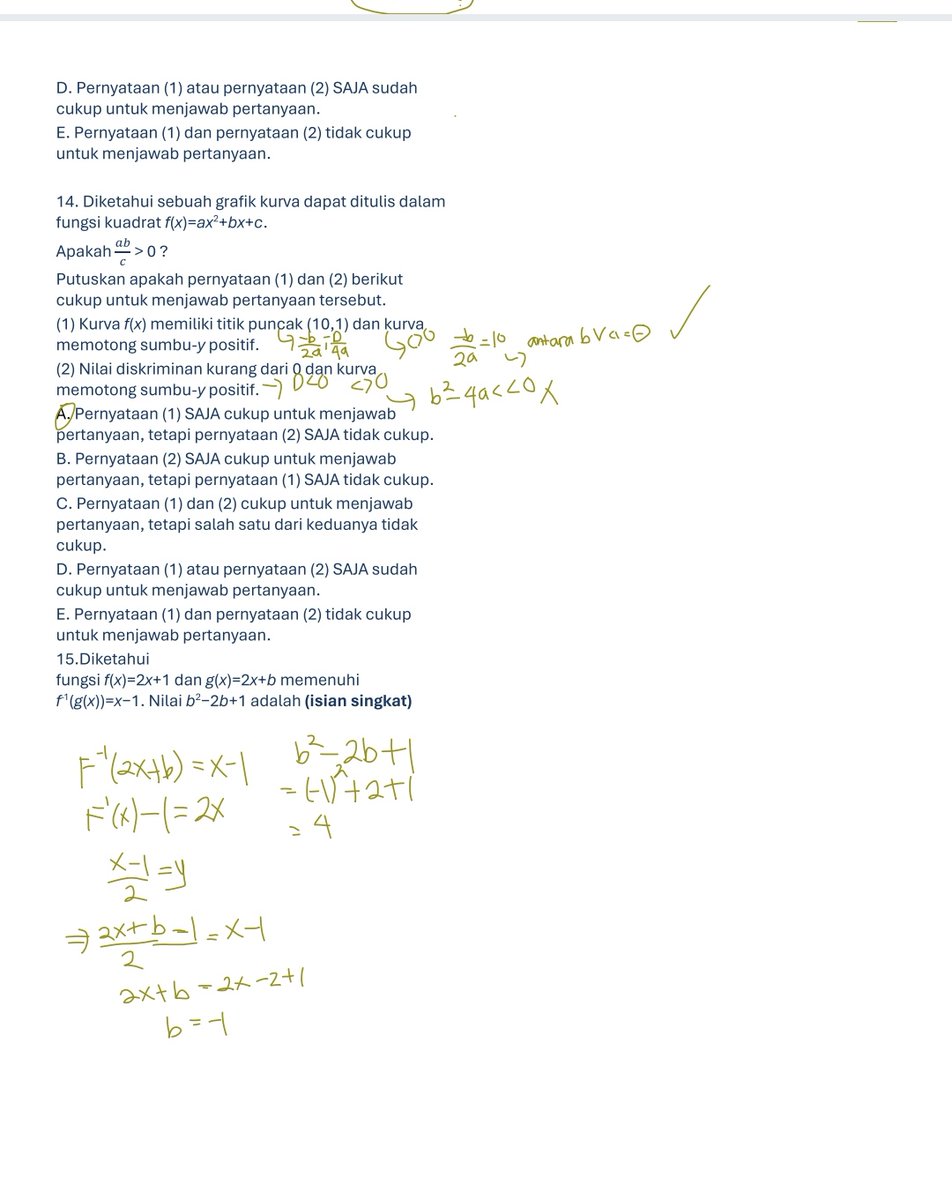 D. Pernyataan (1) atau pernyataan (2) SAJA sudah
cukup untuk menjawab pertanyaan.
E. Pernyataan (1) dan pernyataan (2) tidak cukup
untuk menjawab pertanyaan.
14. Diketahui sebuah grafik kurva dapat ditulis dalam
fungsi kuadrat f(x)=ax²+bx+c.
Apakah ab/c > 0 ?
Putuskan apakah pernyataan (1) dan (2) berikut
cukup untuk menjawab pertanyaan tersebut.
(1) Kurva f(x) memiliki titik puncak (10,1) dan kurva
memotong sumbu-y positif. ↳ -b/2a, -D/4a ↳ -b/2a = 10 ↳ antara b V a = ⊖ ✓
(2) Nilai diskriminan kurang dari 0 dan kurva
memotong sumbu-y positif. → D<0 c>0 ↳ b²-4ac<0 X
A. Pernyataan (1) SAJA cukup untuk menjawab
pertanyaan, tetapi pernyataan (2) SAJA tidak cukup.
B. Pernyataan (2) SAJA cukup untuk menjawab
pertanyaan, tetapi pernyataan (1) SAJA tidak cukup.
C. Pernyataan (1) dan (2) cukup untuk menjawab
pertanyaan, tetapi salah satu dari keduanya tidak
cukup.
D. Pernyataan (1) atau pernyataan (2) SAJA sudah
cukup untuk menjawab pertanyaan.
E. Pernyataan (1) dan pernyataan (2) tidak cukup
untuk menjawab pertanyaan.
15.Diketahui
fungsi f(x)=2x+1 dan g(x)=2x+b memenuhi
f⁻¹(g(x))=x−1. Nilai b²−2b+1 adalah (isian singkat)
F⁻¹(2x+b) = x-1
F⁻¹(x)-1 = 2x
x-1/2 = y
⇒ 2x+b-1/2 = x-1
2x+b = 2x-2+1
b = -1
b²-2b+1
= (-1)²+2+1
= 4